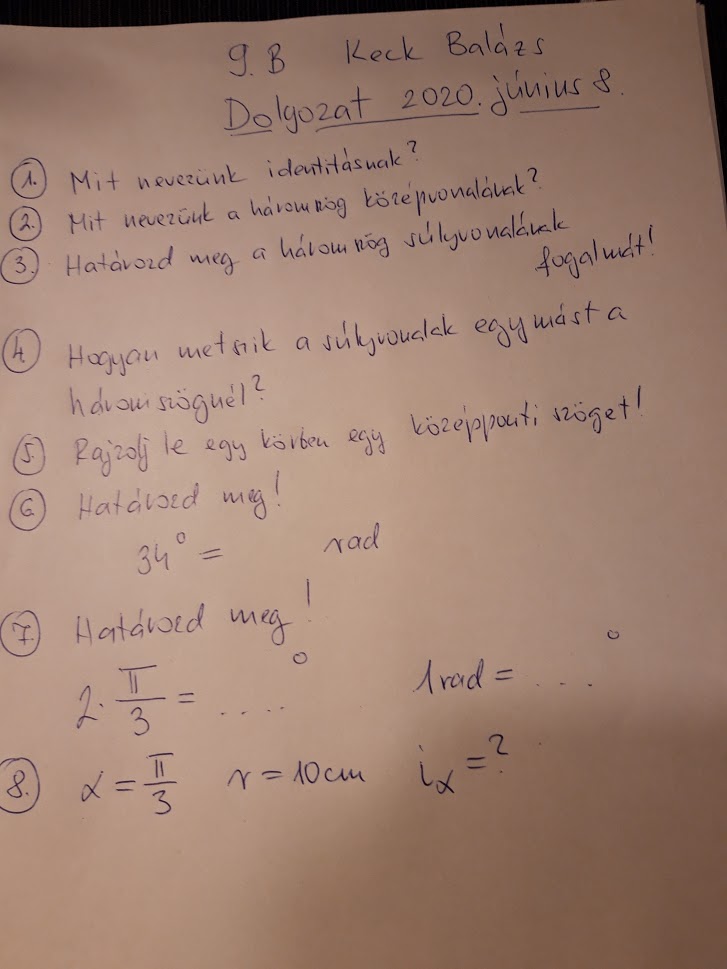 9. B Keck Balázs
Dolgozat 2020. június 8.
1. Mit nevezünk identitásnak?
2. Mit nevezünk a háromszög középvonalának?
3. Határozd meg a háromszög súlyvonalának
fogalmát!
4. Hogyan metszik a súlyvonalak egymást a
háromszögnél?
5. Rajzolj le egy körben egy középponti szöget!
6. Határozd meg!
34° = rad
7. Határozd meg!
2·π/3 = ....° 1 rad = ...°
8. α = π/3 r = 10 cm iα = ?